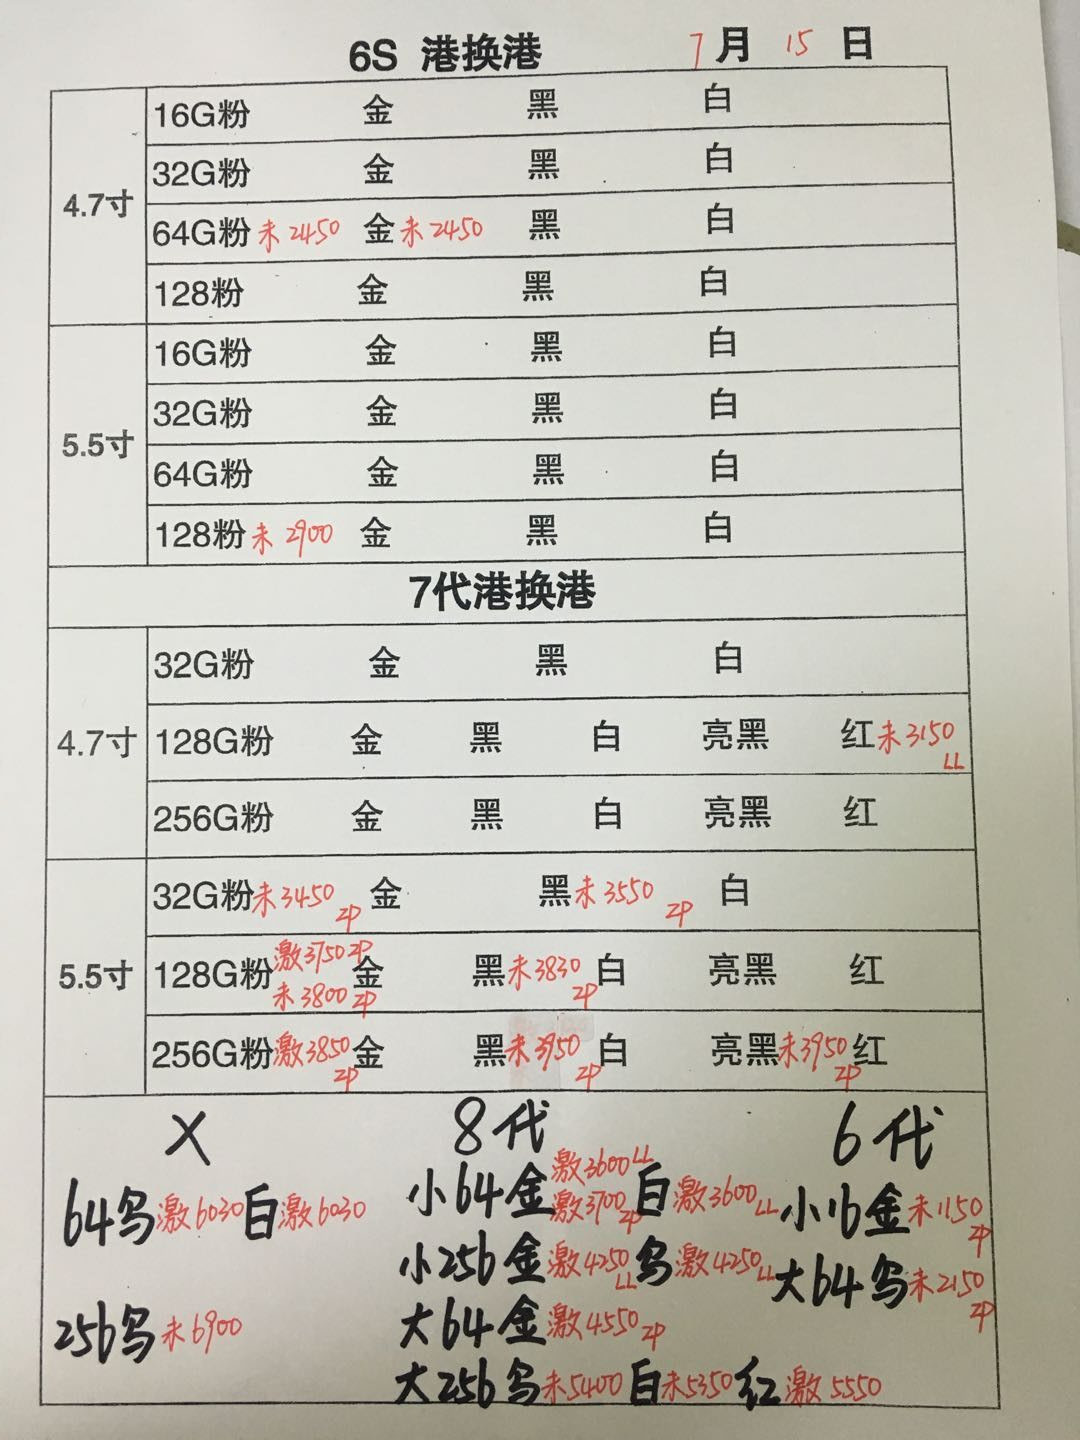 6S 港换港 7月 15 日
4.7寸
16G粉 金 黑 白
32G粉 金 黑 白
64G粉 未2450 金 未2450 黑 白
128粉 金 黑 白
5.5寸
16G粉 金 黑 白
32G粉 金 黑 白
64G粉 金 黑 白
128粉 未2900 金 黑 白
7代港换港
4.7寸
32G粉 金 黑 白
128G粉 金 黑 白 亮黑 红 未3150 LL
256G粉 金 黑 白 亮黑 红
5.5寸
32G粉 未3450 ZP 金 黑 未3550 ZP 白
128G粉 激3750 ZP 未3800 ZP 金 黑 未3830 ZP 白 亮黑 红
256G粉 激3850 ZP 金 黑 未3950 ZP 白 亮黑 未3950 ZP 红
X 8代 6代
64乌 激6030 白 激6030
256乌 未6900
小64金 激3600 LL 激3700 ZP 白 激3600 LL
小256金 激4250 LL 乌 激4250 LL
大64金 激4550 ZP
大256乌 未5400 白 未5350 红 激5550
小16金 未1150 ZP
大64乌 未2150 ZP